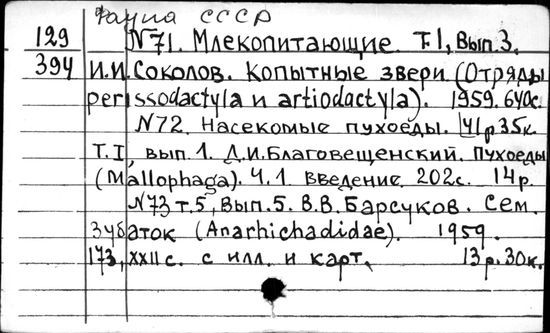 Фауна СССР
129 №71. Млекопитающие. Т.1, Вып.3.
394 И.И.Соколов. Копытные звери (Отряды
perissodactyla и artiodactyla). 1959. 640с.
№72. Насекомые пухоеды. 41р.35к.
Т.I, вып.1. Д.И.Благовещенский. Пухоеды
(Mallophaga). Ч.1. Введение. 202с. 14р.
№73 т.5, Вып.5. В.В.Барсуков. Сем.
Зубаток (Anarhichadidae). 1959.
173, XXII с. с илл. и карт. 13р.30к.